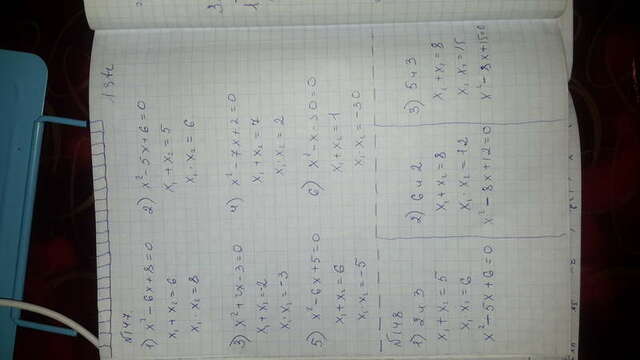 №147
1) x²-6x+8=0
x₁+x₂=6
x₁·x₂=8
2) x²-5x+6=0
x₁+x₂=5
x₁·x₂=6
3) x²+2x-3=0
x₁+x₂=2
x₁·x₂=-3
4) x²-7x+2=0
x₁+x₂=7
x₁·x₂=2
5) x²-6x+5=0
x₁+x₂=6
x₁·x₂=-5
6) x²-x-30=0
x₁+x₂=1
x₁·x₂=-30
№148
1) 2 и 3
x₁+x₂=5
x₁·x₂=6
x²-5x+6=0
2) 6 и 2
x₁+x₂=8
x₁·x₂=12
x²-8x+12=0
3) 5 и 3
x₁+x₂=8
x₁·x₂=15
x²-8x+15=0